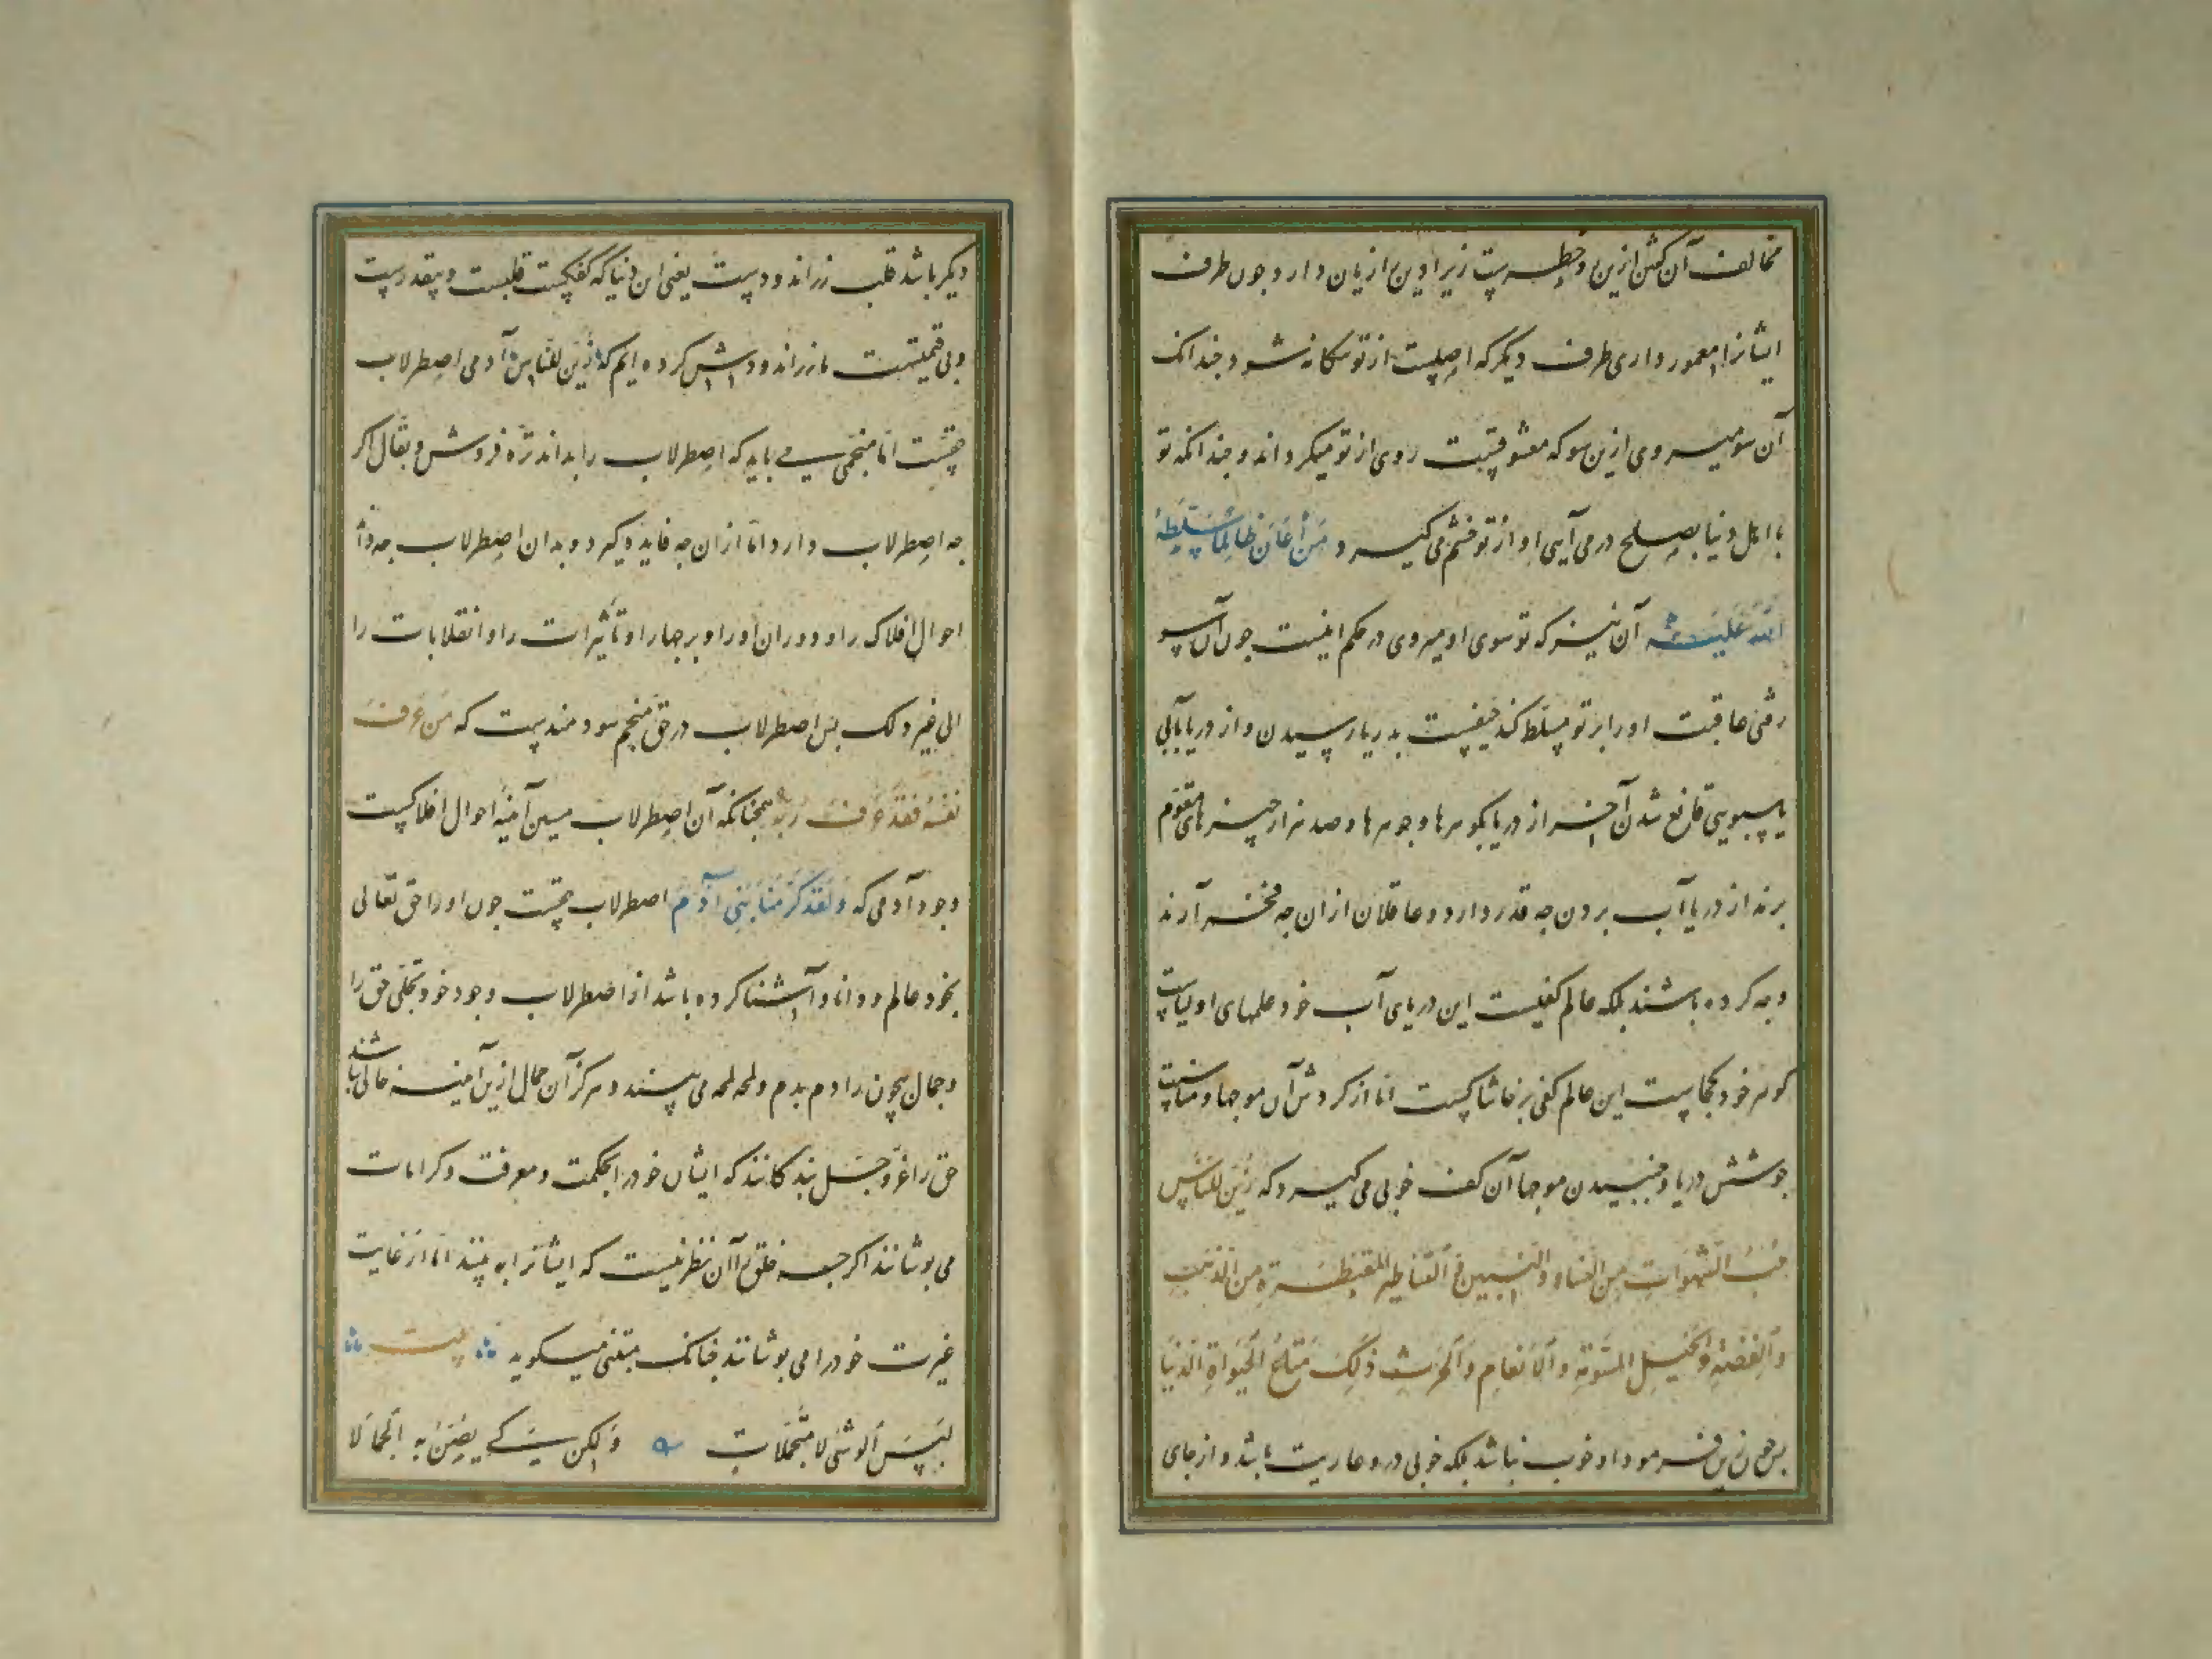 مخالف آن گفتن ازین رو خطرست زیرا دین را زیان دارد چون طرف
ایشانرا معمور داری طرف دیگر که اصلیست از تو بیگانه شود چندانک
آن سو میروی ازین سو که معشوقیست روی از تو میگرداند و چندانکه تو
با اهل دنیا بصلح درمی آیی او از تو خشم می گیرد مَن أعَانَ ظَالِمًا سَلَّطَهُ
اللهُ عَلَیْهِ آن نیز که تو سوی او میروی در حکم اینست چون آن سو
رفتی عاقبت او را بر تو مسلط کند حیفست بدریا رسیدن و از دریا بآبی
یا سبویی قانع شدن آخر از دریا گوهرها و جوهرها و صد هزار چیزهای مقوم
برند از دریا آب بردن چه قدر دارد و عاقلان از آن چه فخر آرند
و چه کرده باشند بلکه عالم کفیست این دریای آب خود علمهای اولیاست
گوهر خود کجاست این عالم کفی پر خاشاکست اما از گردش آن موجها و مناسبت
جوشش دریا و جنبیدن موجها آن کف خوبی می گیرد که زُیِّنَ لِلنَّاسِ
حُبُّ الشَّهَوَاتِ مِنَ النِّسَاءِ وَالبَنِینَ وَالقَنَاطِیرِ المُقَنْطَرَةِ مِنَ الذَّهَبِ
وَالْفِضَّةِ وَالخَیْلِ المُسَوَّمَةِ وَالْأَنْعَامِ وَالْحَرْثِ ذٰلِکَ مَتَاعُ الْحَیَوٰةِ الدُّنْیَا
پس چون زین فرمود او خوب نباشد بلکه خوبی درو عاریت باشد و از جای
دیگر باشد قلب زراندودست یعنی این دنیا که کفکست قلبست و بیقدرست
و بی قیمتست ما زراندودش کرده ایم که زُیِّنَ لِلنَّاسِ آدمی اصطرلاب
حقست اما منجمی می باید که اصطرلاب را بداند تره فروش و بقال اگر
چه اصطرلاب دارد اما از آن چه فایده گیرد و بدان اصطرلاب چه داند
احوال افلاک را و دوران او را و برجها را و تأثیرات را و انقلابات را
الی غیر ذلک پس اصطرلاب در حق منجم سودمندست که مَن عَرَفَ
نَفْسَهُ فَقَدْ عَرَفَ رَبَّهُ همچنانکه آن اصطرلاب مسین آینهٔ احوال افلاکست
وجود آدمی که وَلَقَدْ کَرَّمْنَا بَنِی آدَمَ اصطرلاب حقست چون او را حق تعالی
بخود عالم و دانا و آشنا کرده باشد از اصطرلاب وجود خود تجلی حق را
و جمال بیچون را دم بدم و لمحه لمحه می بیند و هرگز آن جمال ازین آینه خالی نباشد
حق را عزّ و جلّ بندگانند که ایشان خود را بحکمت و معرفت و کرامات
می پوشانند اگر چه خلق را آن نظر نیست که ایشانرا به بینند اما از غایت
غیرت خود را می پوشانند چنانک متنبی میگوید بیت
لَبِسْنَ الْوَشْیَ لَا مُتَجَمِّلَاتٍ وَلٰکِن کَیْ یَصُنَّ بِهِ الْجَمَالَا